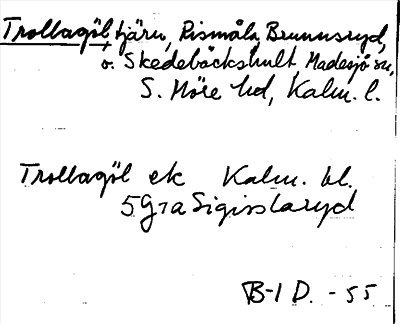 Trollagöl, tjärn, Rismåla, Brunnsryd,
o. Skedebäckshult, Madesjö sn,
S. Möre hd, Kalm. l.
Trollagöl ek Kalm. bl.
5G7a Sigisslaryd
B-I D. -55